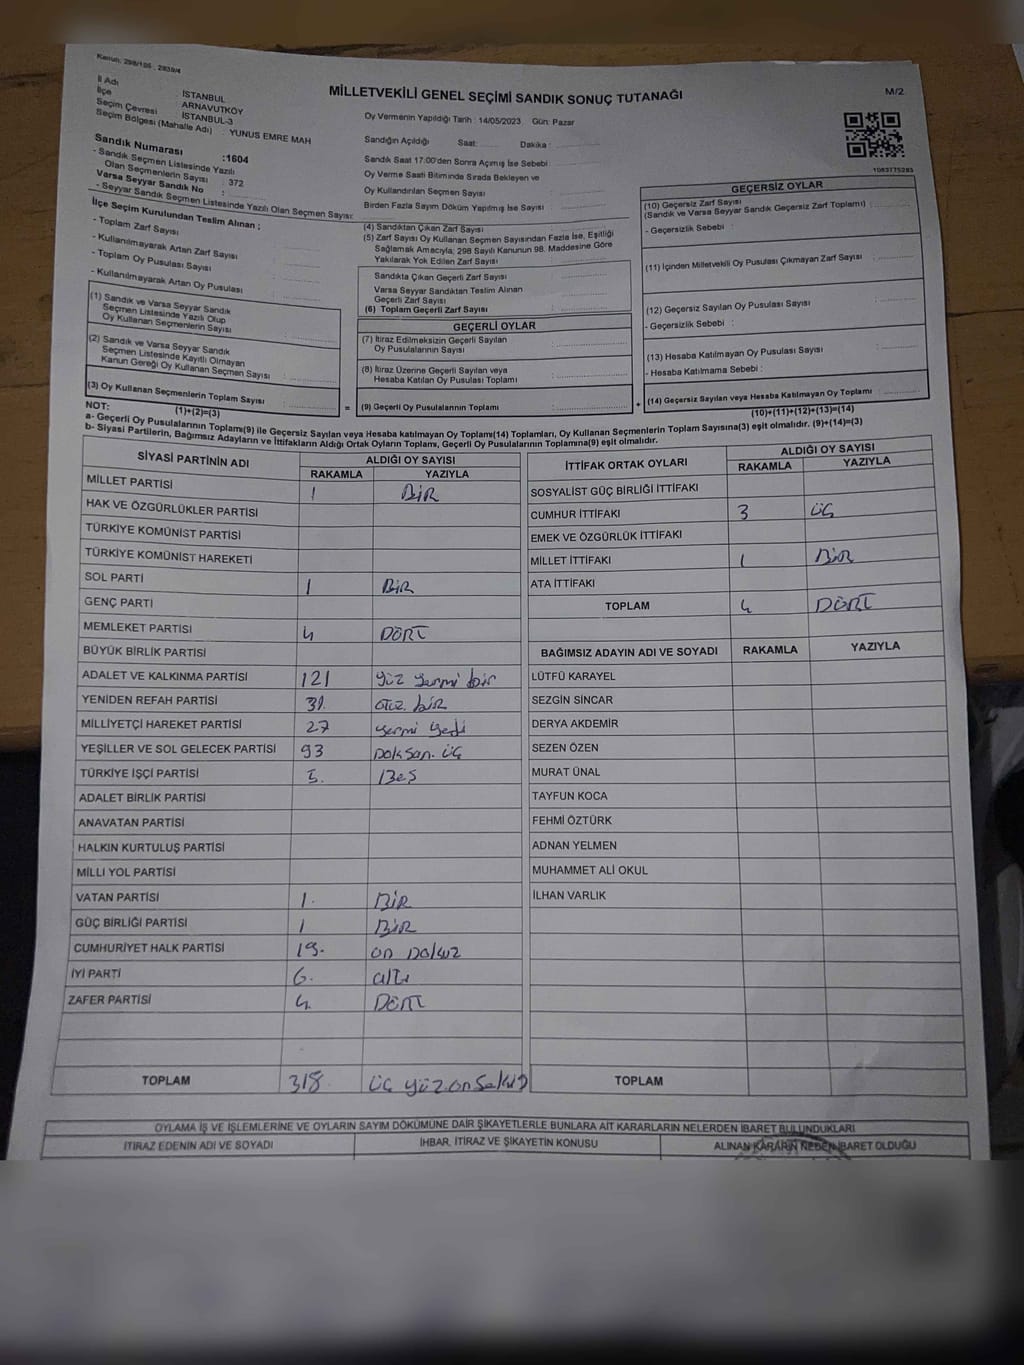 Kanun, 298/105 , 2839/4
MİLLETVEKİLİ GENEL SEÇİMİ SANDIK SONUÇ TUTANAĞI
M/2
İl Adı İSTANBUL
İlçe ARNAVUTKÖY
Seçim Çevresi İSTANBUL-3
Seçim Bölgesi (Mahalle Adı) YUNUS EMRE MAH
Sandık Numarası :1604
- Sandık Seçmen Listesinde Yazılı
Olan Seçmenlerin Sayısı : 372
Varsa Seyyar Sandık No :
- Seyyar Sandık Seçmen Listesinde Yazılı Olan Seçmen Sayısı:
İlçe Seçim Kurulundan Teslim Alınan ;
- Toplam Zarf Sayısı
- Kullanılmayarak Artan Zarf Sayısı
- Toplam Oy Pusulası Sayısı
- Kullanılmayarak Artan Oy Pusulası
(1) Sandık ve Varsa Seyyar Sandık
Seçmen Listesinde Yazılı Olup
Oy Kullanan Seçmenlerin Sayısı
(2) Sandık ve Varsa Seyyar Sandık
Seçmen Listesinde Kayıtlı Olmayan
Kanun Gereği Oy Kullanan Seçmen Sayısı
(3) Oy Kullanan Seçmenlerin Toplam Sayısı
(1)+(2)=(3)
Oy Vermenin Yapıldığı Tarih : 14/05/2023 Gün: Pazar
Sandığın Açıldığı Saat: Dakika :
Sandık Saat 17.00'den Sonra Açımış İse Sebebi :
Oy Verme Saati Bitiminde Sırada Bekleyen ve
Oy Kullandırılan Seçmen Sayısı
Birden Fazla Sayım Döküm Yapılmış İse Sayısı
(4) Sandıktan Çıkan Zarf Sayısı
(5) Zarf Sayısı Oy Kullanan Seçmen Sayısından Fazla İse, Eşitliği
Sağlamak Amacıyla, 298 Sayılı Kanunun 98. Maddesine Göre
Yakılarak Yok Edilen Zarf Sayısı
Sandıkta Çıkan Geçerli Zarf Sayısı
Varsa Seyyar Sandıktan Teslim Alınan
Geçerli Zarf Sayısı
(6) Toplam Geçerli Zarf Sayısı
GEÇERLİ OYLAR
(7) İtiraz Edilmeksizin Geçerli Sayılan
Oy Pusulalarının Sayısı
(8) İtiraz Üzerine Geçerli Sayılan veya
Hesaba Katılan Oy Pusulası Toplamı
= (9) Geçerli Oy Pusulalarının Toplamı +
1083775283
GEÇERSİZ OYLAR
(10) Geçersiz Zarf Sayısı
(Sandık ve Varsa Seyyar Sandık Geçersiz Zarf Toplamı) :
- Geçersizlik Sebebi :
(11) İçinden Milletvekili Oy Pusulası Çıkmayan Zarf Sayısı
(12) Geçersiz Sayılan Oy Pusulası Sayısı :
- Geçersizlik Sebebi :
(13) Hesaba Katılmayan Oy Pusulası Sayısı :
- Hesaba Katılmama Sebebi :
(14) Geçersiz Sayılan veya Hesaba Katılmayan Oy Toplamı
(10)+(11)+(12)+(13)=(14)
NOT:
a- Geçerli Oy Pusulalarının Toplamı(9) ile Geçersiz Sayılan veya Hesaba katılmayan Oy Toplamı(14) Toplamları, Oy Kullanan Seçmenlerin Toplam Sayısına(3) eşit olmalıdır. (9)+(14)=(3)
b- Siyasi Partilerin, Bağımsız Adayların ve İttifakların Aldığı Ortak Oyların Toplamı, Geçerli Oy Pusulalarının Toplamına(9) eşit olmalıdır.
SİYASİ PARTİNİN ADI ALDIĞI OY SAYISI
RAKAMLA YAZIYLA
MİLLET PARTİSİ 1 BİR
HAK VE ÖZGÜRLÜKLER PARTİSİ
TÜRKİYE KOMÜNİST PARTİSİ
TÜRKİYE KOMÜNİST HAREKETİ
SOL PARTİ 1 BİR
GENÇ PARTİ
MEMLEKET PARTİSİ 4 DÖRT
BÜYÜK BİRLİK PARTİSİ
ADALET VE KALKINMA PARTİSİ 121 yüz yirmi bir
YENİDEN REFAH PARTİSİ 31. otuz bir
MİLLİYETÇİ HAREKET PARTİSİ 27 yirmi yedi
YEŞİLLER VE SOL GELECEK PARTİSİ 93 Doksan. üç
TÜRKİYE İŞÇİ PARTİSİ 5. Beş
ADALET BİRLİK PARTİSİ
ANAVATAN PARTİSİ
HALKIN KURTULUŞ PARTİSİ
MİLLİ YOL PARTİSİ
VATAN PARTİSİ 1. BİR
GÜÇ BİRLİĞİ PARTİSİ 1 BİR
CUMHURİYET HALK PARTİSİ 19. on Dokuz
İYİ PARTİ 6. altı
ZAFER PARTİSİ 4. DÖRT
TOPLAM 318 üç yüz on sekiz
İTTİFAK ORTAK OYLARI ALDIĞI OY SAYISI
RAKAMLA YAZIYLA
SOSYALİST GÜÇ BİRLİĞİ İTTİFAKI
CUMHUR İTTİFAKI 3 üç
EMEK VE ÖZGÜRLÜK İTTİFAKI
MİLLET İTTİFAKI 1 BİR
ATA İTTİFAKI
TOPLAM 4 DÖRT
BAĞIMSIZ ADAYIN ADI VE SOYADI RAKAMLA YAZIYLA
LÜTFÜ KARAYEL
SEZGİN SİNCAR
DERYA AKDEMİR
SEZEN ÖZEN
MURAT ÜNAL
TAYFUN KOCA
FEHMİ ÖZTÜRK
ADNAN YELMEN
MUHAMMET ALİ OKUL
İLHAN VARLIK
TOPLAM
OYLAMA İŞ VE İŞLEMLERİNE VE OYLARIN SAYIM DÖKÜMÜNE DAİR ŞİKAYETLERLE BUNLARA AİT KARARLARIN NELERDEN İBARET BULUNDUKLARI
İTİRAZ EDENİN ADI VE SOYADI İHBAR, İTİRAZ VE ŞİKAYETİN KONUSU ALINAN KARARIN NEDEN İBARET OLDUĞU